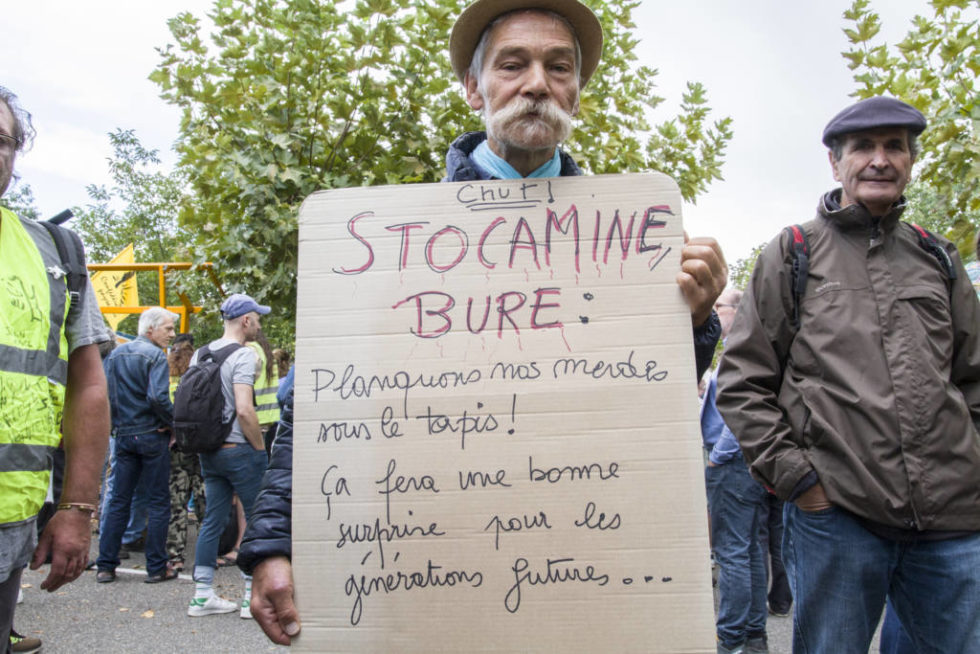 Chut !
STOCAMINE,
BURE :
Planquons nos merdes
sous le tapis !
Ça fera une bonne
surprise pour les
générations futures....